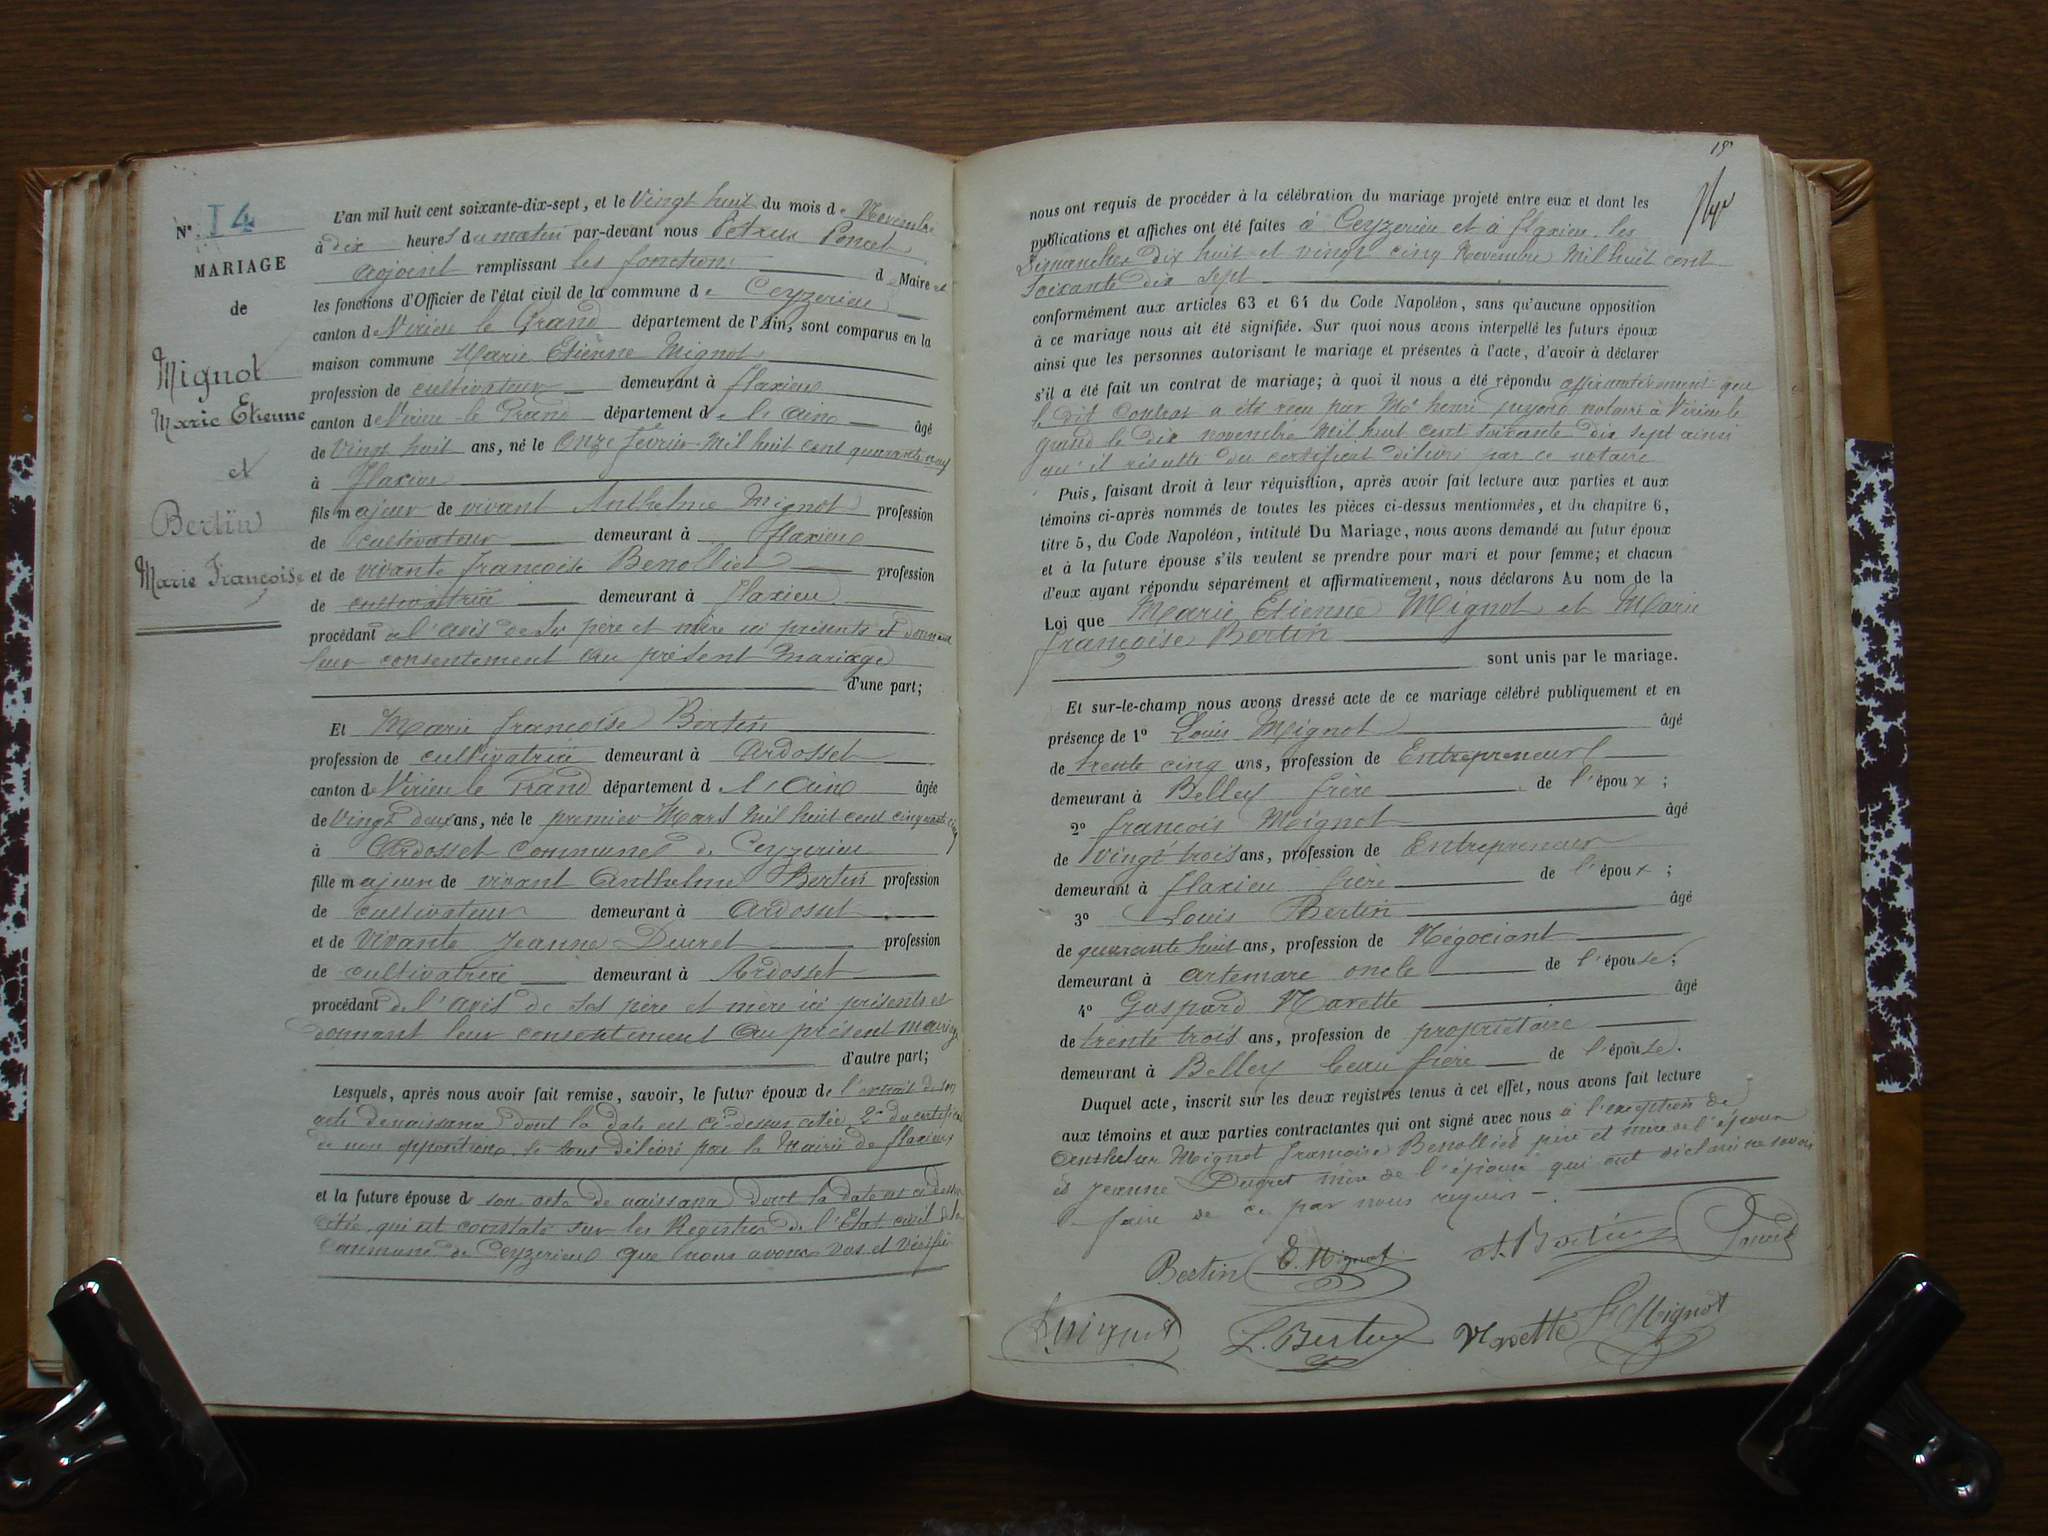 N° 14
MARIAGE
de
Mignot
Marie Etienne
et
Bertin
Marie Françoise
L'an mil huit cent soixante-dix-sept, et le Vingt huit du mois de Novembre
à dix heures du matin par-devant nous Petrus Poncet
adjoint remplissant les fonctions de Maire et
les fonctions d'Officier de l'état civil de la commune de Ceyzerieu
canton de Virieu le Grand département de l'Ain, sont comparus en la
maison commune Marie Etienne Mignot
profession de cultivateur demeurant à flaxieu
canton de Virieu-le Grand département de l'ain âgé
de Vingt huit ans, né le Onze février Mil huit cent quarante neuf
à flaxieu
fils majeur de vivant Anthelme Mignot profession
de cultivateur demeurant à flaxieu
et de vivante françoise Benolliet profession
de cultivatrice demeurant à flaxieu
procédant de l'avis de ses père et mère ici présents et donnant
leur consentement au présent mariage
d'une part;
Et Marie françoise Bertin
profession de cultivatrice demeurant à Ardosset
canton de Virieu le Grand département de l'Ain âgée
de Vingt deux ans, née le premier Mars Mil huit cent cinquante cinq
à Ardosset commune de Ceyzerieu
fille majeure de vivant Anthelme Bertin profession
de cultivateur demeurant à Ardosset
et de vivante Jeanne Ducret profession
de cultivatrice demeurant à Ardosset
procédant de l'avis de ses père et mère ici présents et
donnant leur consentement au présent mariage
d'autre part;
Lesquels, après nous avoir fait remise, savoir, le futur époux de l'extrait de son
acte denaissance dont la date est ci-dessus citée, 2° du certificat
de non opposition le tous délivré par la Mairie de flaxieu
et la future épouse de son acte de naissance dont la date est ci dessus
citée qui est constaté sur les Registres de l'Etat civil de la
commune de Ceyzerieu que nous avons vus et vérifié
18
nous ont requis de procéder à la célébration du mariage projeté entre eux et dont les
publications et affiches ont été faites à Ceyzerieu et à flaxieu les
Dimanches dix huit et vingt cinq Novembre Mil huit cent
soixante dix sept
conformément aux articles 63 et 64 du Code Napoléon, sans qu'aucune opposition
à ce mariage nous ait été signifiée. Sur quoi nous avons interpellé les futurs époux
ainsi que les personnes autorisant le mariage et présentes à l'acte, d'avoir à déclarer
s'il a été fait un contrat de mariage; à quoi il nous a été répondu affirmativement que
le dit Contrat a été reçu par Me henri notaire à Virieu le
grand le dix novembre Mil huit cent soixante dix sept ainsi
qu'il résulte du certificat délivré par ce notaire
Puis, faisant droit à leur réquisition, après avoir fait lecture aux parties et aux
témoins ci-après nommés de toutes les pièces ci-dessus mentionnées, et du chapitre 6,
titre 5, du Code Napoléon, intitulé Du Mariage, nous avons demandé au futur époux
et à la future épouse s'ils veulent se prendre pour mari et pour femme; et chacun
d'eux ayant répondu séparément et affirmativement, nous déclarons Au nom de la
Loi que Marie Etienne Mignot et Marie
françoise Bertin
sont unis par le mariage.
Et sur-le-champ nous avons dressé acte de ce mariage célébré publiquement et en
présence de 1° Louis Mignot âgé
de trente cinq ans, profession de Entrepreneur
demeurant à Belley frère de l'époux;
2° françois Mignot âgé
de vingt trois ans, profession de Entrepreneur
demeurant à flaxieu frère de l'époux;
3° Louis Bertin âgé
de quarante huit ans, profession de Négociant
demeurant à artemare oncle de l'épouse;
4° Gaspard Navette âgé
de trente trois ans, profession de propriétaire
demeurant à Belley beau frère de l'épouse.
Duquel acte, inscrit sur les deux registres tenus à cet effet, nous avons fait lecture
aux témoins et aux parties contractantes qui ont signé avec nous à l'exception de
Anthelme Mignot françoise Benolliet père et mère de l'époux
et Jeanne Ducret mère de l'épouse qui ont déclaré ne savoir
faire de ce par nous requis
Bertin E. Mignot A. Bertin Poncet
L. Mignot L. Bertin Navette F. Mignot